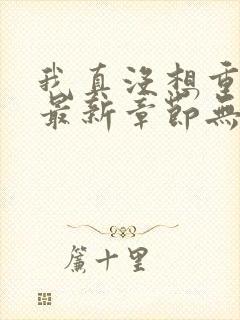 我真没想重
最新章節無
簾十里